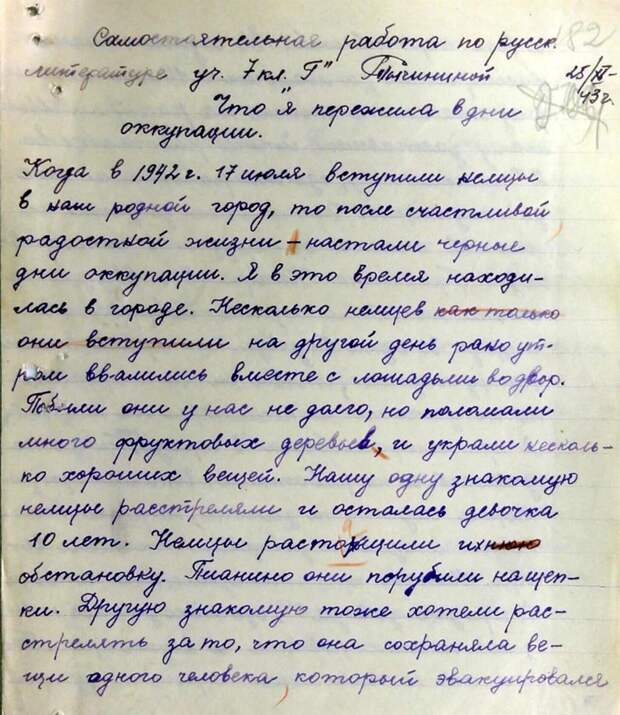 Самостоятельная работа по русск. 182
литературе уч. 7 кл. "Г" Тычининой 25/XI-
43 г.
Что "я" пережила в дни
оккупации.
Когда в 1942 г. 17 июля вступили немцы
в наш родной город, то после счастливой
радостной жизни - настали черные
дни оккупации. Я в это время находи-
лась в городе. Несколько немцев как только
они вступили на другой день рано ут-
ром ввалились вместе с лошадьми во двор.
Побыли они у нас не долго, но поломали
много фруктовых деревьев, и украли несколь-
ко хороших вещей. Нашу одну знакомую
немцы расстреляли и осталась девочка
10 лет. Немцы растащили ихнюю
обстановку. Пианино они порубили на щеп-
ки. Другую знакомую тоже хотели рас-
стрелять за то, что она сохраняла ве-
щи одного человека, который эвакуировался